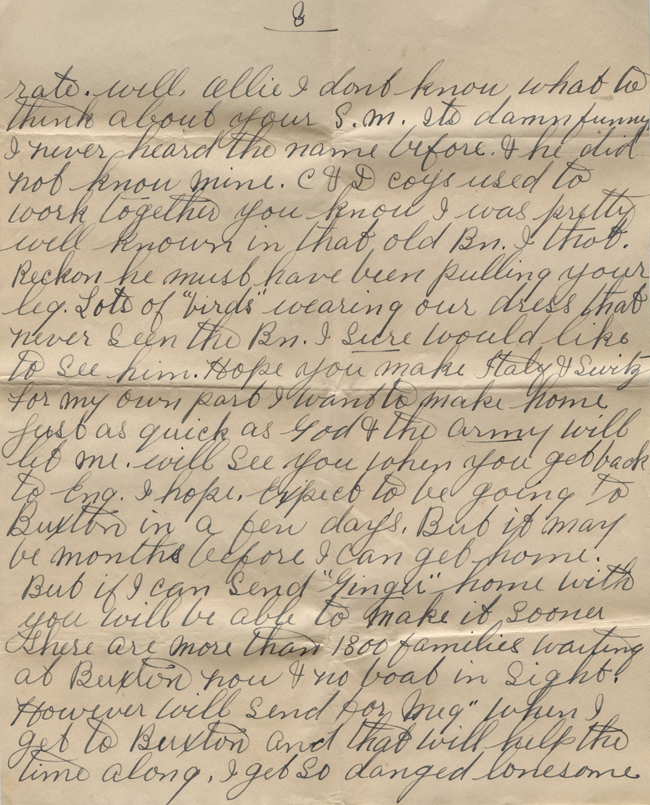 8
rate. Will, Allie I dont know what to
think about your S.M. Its damn funny
I never heard the name before. & he did
not know mine. C & D coys used to
work together you know I was pretty
well known in that old Bn. I thot.
Reckon he must have been pulling your
leg. Lots of "birds" wearing our dress that
never seen the Bn. I Sure would like
to See him. Hope you make Italy & Switz
for my own part I want to make home
just as quick as God & the army will
let me. will See you when you get back
to Eng. I hope. Expect to be going to
Buxton in a few days. But it may
be months before I can get home.
But if I can Send "Ginger" home with
you will be able to make it Sooner
There are more than 1800 families waiting
at Buxton now & no boat in Sight.
However will Send for "Meg" when I
get to Buxton and that will help the
time along. I get So danged lonesome